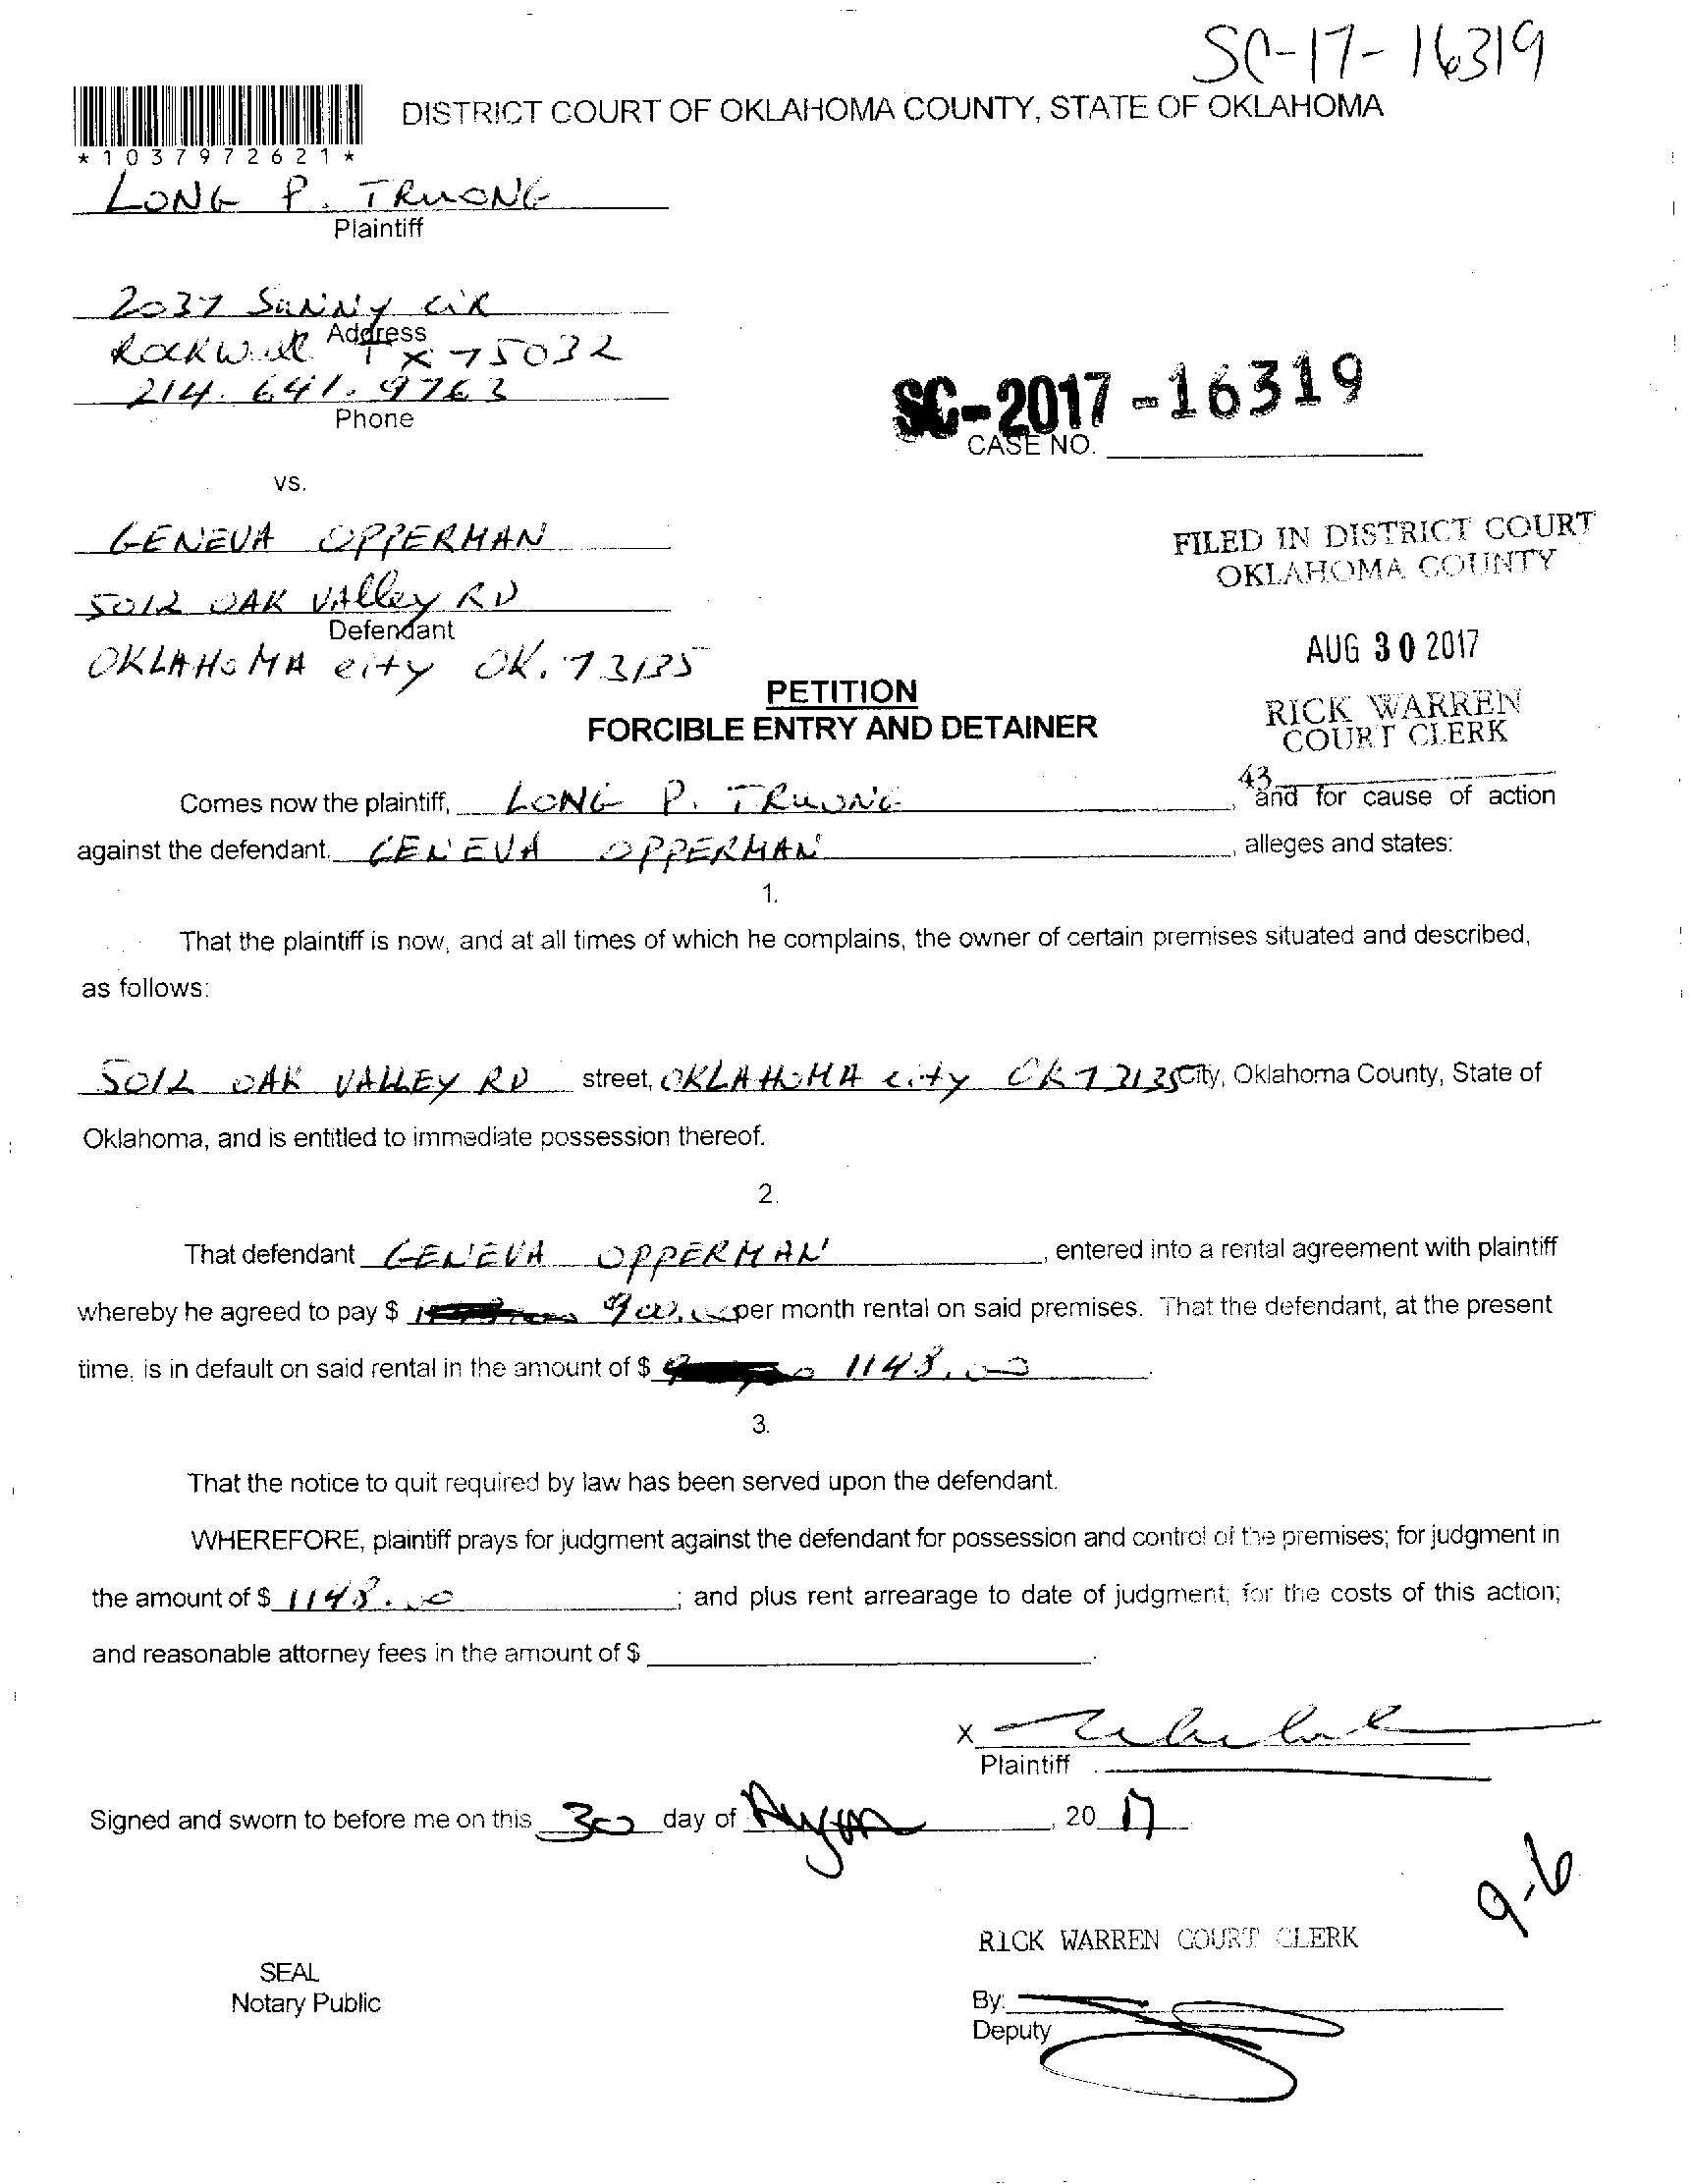 SC-17-16319
DISTRICT COURT OF OKLAHOMA COUNTY, STATE OF OKLAHOMA
*1037972621*
LONG P. TRUONG
Plaintiff
2037 SUNNY CIR
Address
ROCKWall TX 75032
214. 641. 9763
Phone
SC-2017-16319
CASE NO.
vs.
GENEVA OPPERMAN
5012 OAK VAlley RD
Defendant
OKLAHOMA city OK. 73135
FILED IN DISTRICT COURT
OKLAHOMA COUNTY
AUG 30 2017
RICK WARREN
COURT CLERK
43
PETITION
FORCIBLE ENTRY AND DETAINER
Comes now the plaintiff, LONG P. TRUONG, and for cause of action
against the defendant, GENEVA OPPERMAN, alleges and states:
1.
That the plaintiff is now, and at all times of which he complains, the owner of certain premises situated and described,
as follows:
5012 OAK VALLEY RD street, OKLAHOMA city OK 73135 City, Oklahoma County, State of
Oklahoma, and is entitled to immediate possession thereof.
2.
That defendant GENEVA OPPERMAN, entered into a rental agreement with plaintiff
whereby he agreed to pay $ 900.00 per month rental on said premises. That the defendant, at the present
time, is in default on said rental in the amount of $ 1148.00.
3.
That the notice to quit required by law has been served upon the defendant.
WHEREFORE, plaintiff prays for judgment against the defendant for possession and control of the premises; for judgment in
the amount of $ 1148.00; and plus rent arrearage to date of judgment; for the costs of this action;
and reasonable attorney fees in the amount of $
X
Plaintiff
Signed and sworn to before me on this 30 day of, 20 17
9-6
RICK WARREN COURT CLERK
SEAL
Notary Public
By:
Deputy